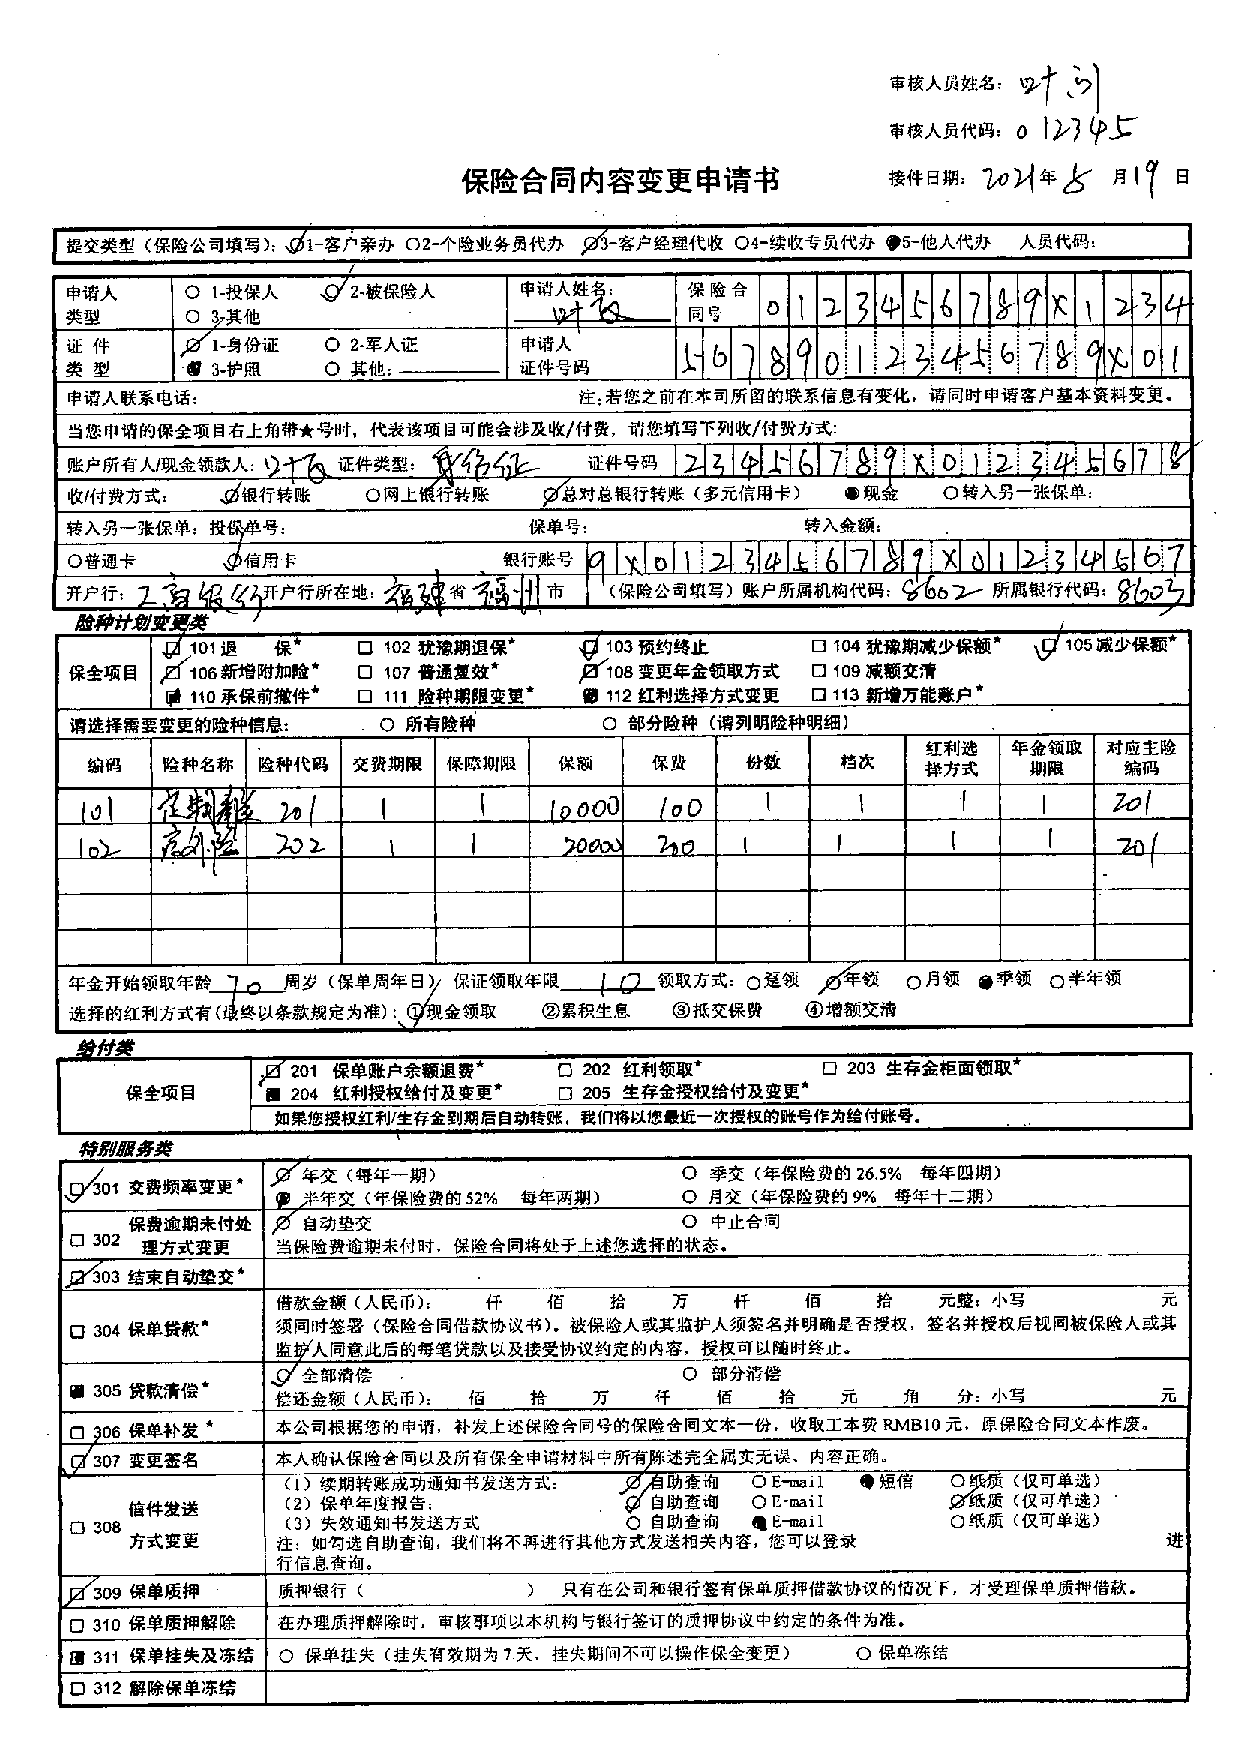 审核人员姓名: 叶问
审核人员代码: 012345
保险合同内容变更申请书
接件日期: 2021年5月19日
提交类型(保险公司填写): 1-客户亲办 ○2-个险业务员代办 3-客户经理代收 ○4-续收专员代办 ●5-他人代办 人员代码:
申请人类型 ○ 1-投保人 2-被保险人 ○ 3-其他 申请人姓名: 保险合同号 0123456789X1234
证件类型 1-身份证 ○ 2-军人证 3-护照 ○ 其他: 申请人证件号码 567890123456789X01
申请人联系电话: 注:若您之前在本司所留的联系信息有变化,请同时申请客户基本资料变更。
当您申请的保全项目右上角带★号时,代表该项目可能会涉及收/付费,请您填写下列收/付费方式:
账户所有人/现金领款人: 证件类型: 身份证 证件号码 23456789X012345678
收/付费方式: 银行转账 ○网上银行转账 总对总银行转账(多元信用卡) ●现金 ○转入另一张保单:
转入另一张保单:投保单号: 保单号: 转入金额:
○普通卡 信用卡 银行账号 9X0123456789X01234567
开户行: 工商银行 开户行所在地: 福建省 福州市 (保险公司填写)账户所属机构代码: 8602 所属银行代码: 8603
险种计划变更类
保全项目
101退 保* □ 102 犹豫期退保* 103 预约终止 □ 104 犹豫期减少保额* 105减少保额*
106新增附加险* □ 107 普通复效* 108 变更年金领取方式 □ 109 减额交清
110 承保前撤件* □ 111 险种期限变更* 112 红利选择方式变更 □ 113 新增万能账户*
请选择需要变更的险种信息: ○ 所有险种 ○ 部分险种(请列明险种明细)
编码 险种名称 险种代码 交费期限 保障期限 保额 保费 份数 档次 红利选择方式 年金领取期限 对应主险编码
101 201 1 1 10000 100 1 1 1 1 201
102 意外险 202 1 1 20000 200 1 1 1 1 201
年金开始领取年龄 70 周岁(保单周年日) 保证领取年限 10 领取方式:○趸领 年领 ○月领 ●季领 ○半年领
选择的红利方式有(最终以条款规定为准): ①现金领取 ②累积生息 ③抵交保费 ④增额交清
给付类
保全项目
201 保单账户余额退费* □ 202 红利领取* □ 203 生存金柜面领取*
204 红利授权给付及变更* □ 205 生存金授权给付及变更*
如果您授权红利/生存金到期后自动转账,我们将以您最近一次授权的账号作为给付账号。
特别服务类
301 交费频率变更* 年交(每年一期) ○ 季交(年保险费的26.5% 每年四期)
半年交(年保险费的52% 每年两期) ○ 月交(年保险费的9% 每年十二期)
□ 302 保费逾期未付处理方式变更 自动垫交 ○ 中止合同
当保险费逾期未付时,保险合同将处于上述您选择的状态。
303 结束自动垫交*
□ 304 保单贷款* 借款金额(人民币): 仟 佰 拾 万 仟 佰 拾 元整:小写 元
须同时签署(保险合同借款协议书)。被保险人或其监护人须签名并明确是否授权,签名并授权后视同被保险人或其
监护人同意此后的每笔贷款以及接受协议约定的内容,授权可以随时终止。
305 贷款清偿* 全部清偿 ○ 部分清偿
偿还金额(人民币): 佰 拾 万 仟 佰 拾 元 角 分:小写 元
□ 306 保单补发* 本公司根据您的申请,补发上述保险合同号的保险合同文本一份,收取工本费RMB10元,原保险合同文本作废。
307 变更签名 本人确认保险合同以及所有保全申请材料中所有陈述完全属实无误、内容正确。
□ 308 信件发送方式变更 (1)续期转账成功通知书发送方式: 自助查询 ○E-mail ●短信 ○纸质(仅可单选)
(2)保单年度报告: 自助查询 ○E-mail 纸质(仅可单选)
(3)失效通知书发送方式 ○ 自助查询 ●E-mail ○纸质(仅可单选)
注:如勾选自助查询,我们将不再进行其他方式发送相关内容,您可以登录 进
行信息查询。
309 保单质押 质押银行( ) 只有在公司和银行签有保单质押借款协议的情况下,才受理保单质押借款。
□ 310 保单质押解除 在办理质押解除时,审核事项以本机构与银行签订的质押协议中约定的条件为准。
311 保单挂失及冻结 ○ 保单挂失(挂失有效期为7天,挂失期间不可以操作保全变更) ○ 保单冻结
□ 312 解除保单冻结